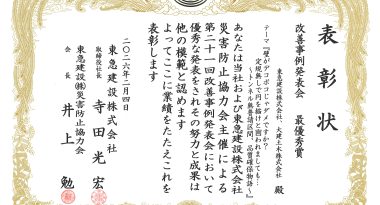 表彰状
改善事例発表会　最優秀賞
東急建設株式会社、大建土木株式会社　殿
テーマ『壁がデコボコじゃダメですか？
定規無しで円を描けと言われましても…
～トンネル舞台請区間　品質確保物語～』
あなたは当社および東急建設株式会社
災害防止協力会主催による
第二十一回改善事例発表会において
優秀な発表をされその努力と成果は
他の模範と認めます
よってここに業績をたたえこれを
表彰します
二〇二六年二月四日
東急建設株式会社
取締役社長　寺田光宏
東急建設㈱災害防止協力会
会長　井上　勉